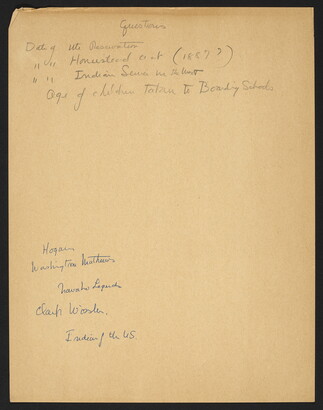 Questions
Date of Ute Reservation
" " Homestead act (1887?)
" " Indian
Age of children taken to Boarding Schools
Hogans
Washington Matthews
Navaho Legends
Clark Wissler.
Indians of the US.